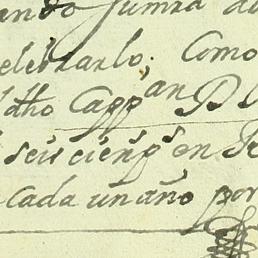 ando
elebrarlo. Como
dho Capp^an D
seiscien^ps en
cada un año por